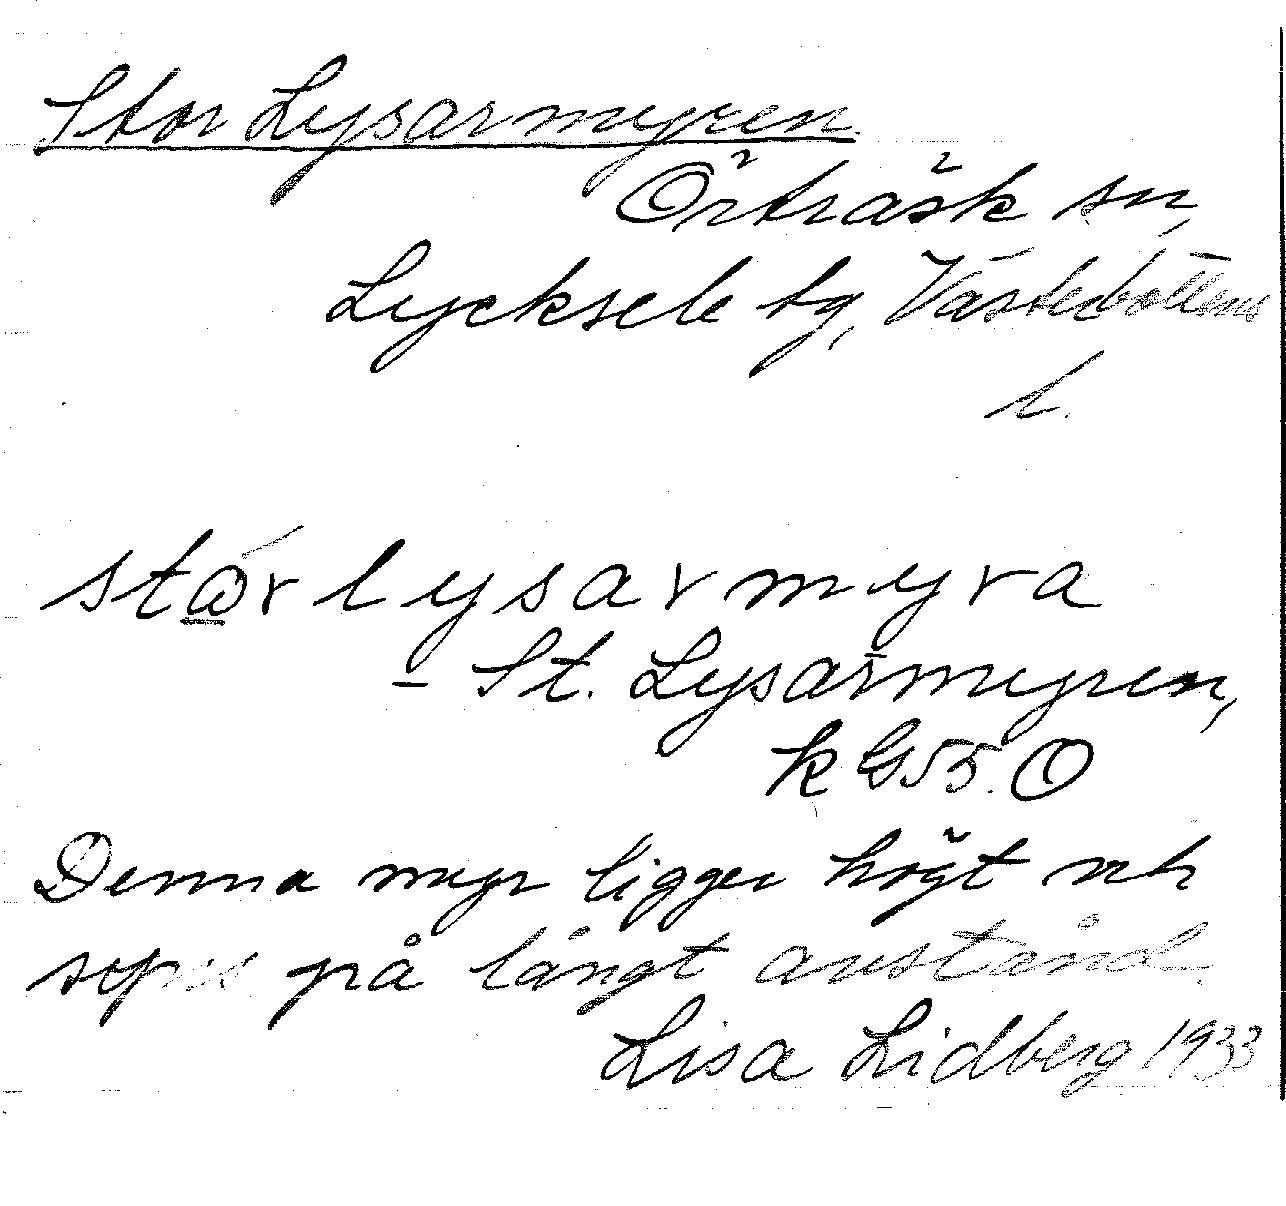 Stor Lysarmyren.
Örträsk sn,
Lycksele tg, Västerbottens
l.
stώ̲r lysarmyra
- St. Lysarmyren,
k G55. O
Denna myr ligger högt och
synes på långt avstånd.
Lisa Lidberg 1933